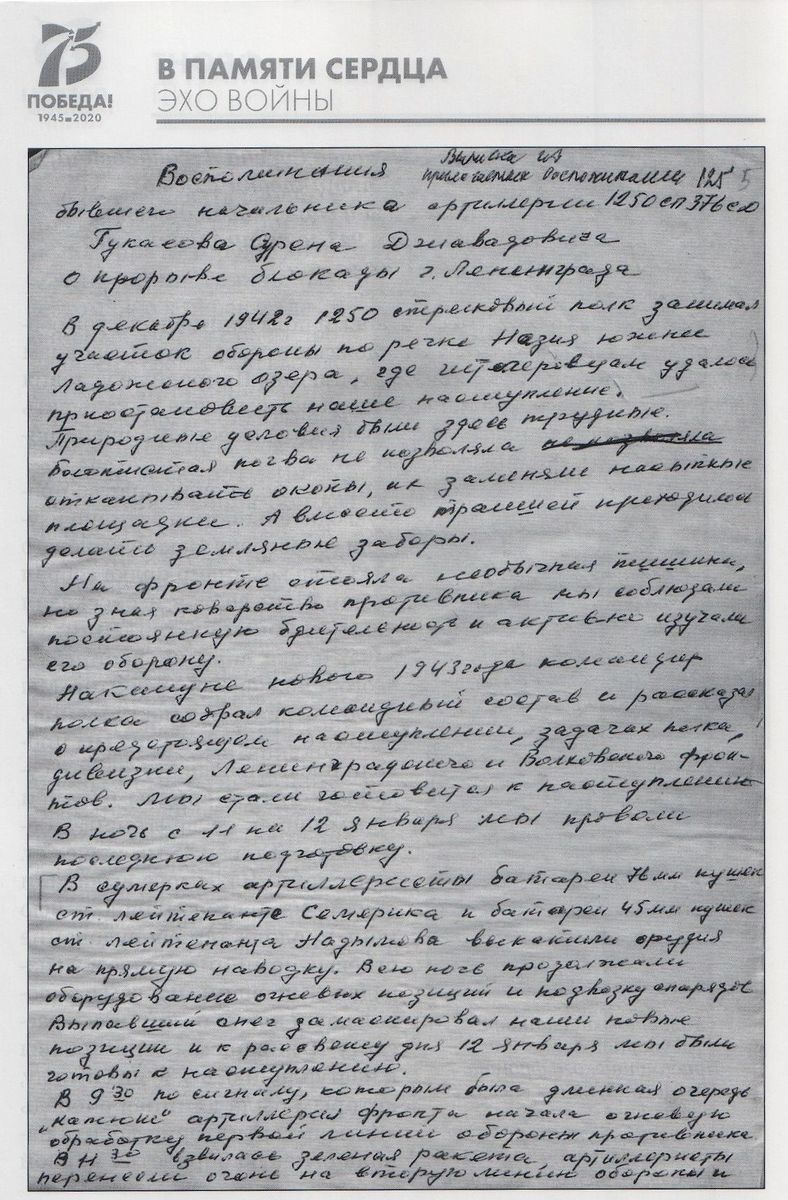 75
ПОБЕДА!
1945-2020
В ПАМЯТИ СЕРДЦА
ЭХО ВОЙНЫ
Воспоминания
воспоминания 125
бывшего начальника артиллерии 1250 сп 376 сд
Гукасова Сурена Джавадовича
о прорыве блокады г. Ленинграда
В декабре 1942г 1250 стрелковый полк занимал
участок обороны по речке Назия южнее
Ладожского озера, где гитлеровцам удалось
приостановить наше наступление.
Природные условия были здесь трудные.
Болотистая почва не позволяла не позволяла
откапывать окопы, их заменяли насыпные
площадки. А вместо траншей приходилось
делать земляные заборы.
На фронте стояла необычная тишина,
но зная коварство противника мы соблюдали
постоянную бдительность и активно изучали
его оборону.
Накануне нового 1943 года командир
полка собрал командный состав и рассказал
о предстоящем наступлении, задачах полка,
дивизии, Ленинградского и Волховского фрон-
тов. Мы стали готовится к наступлению
В ночь с 11 на 12 января мы провели
последнюю подготовку.
В сумерках артиллеристы батареи 76 мм пушек
ст. лейтенанта Семерика и батареи 45 мм пушек
ст. лейтенанта Надымова выкатили орудия
на прямую наводку. Всю ночь продолжали
оборудование огневых позиций и подвозку снарядов
Выпавший снег замаскировал наши новые
позиции и к рассвету дня 12 января мы были
готовы к наступлению.
В 9 30 по сигналу, которым была длинная очередь
„катюш" артиллерия фронта начала огневую
обработку первой линии обороны противника
В 11 30 взвилась зеленая ракета артиллеристы
перенесли огонь на вторую линию обороны и